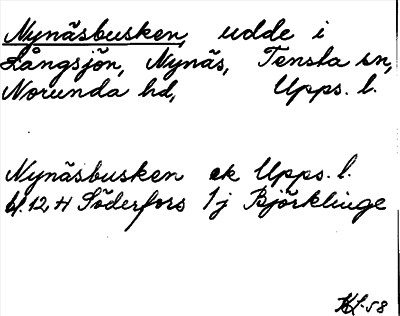 Nynäsbusken, udde i
Långsjön, Nynäs, Tensta sn,
Norunda hd, Upps. l.
Nynäsbusken ek Upps. l.
bl. 12 H Söderfors 1j Björklinge
KL-58